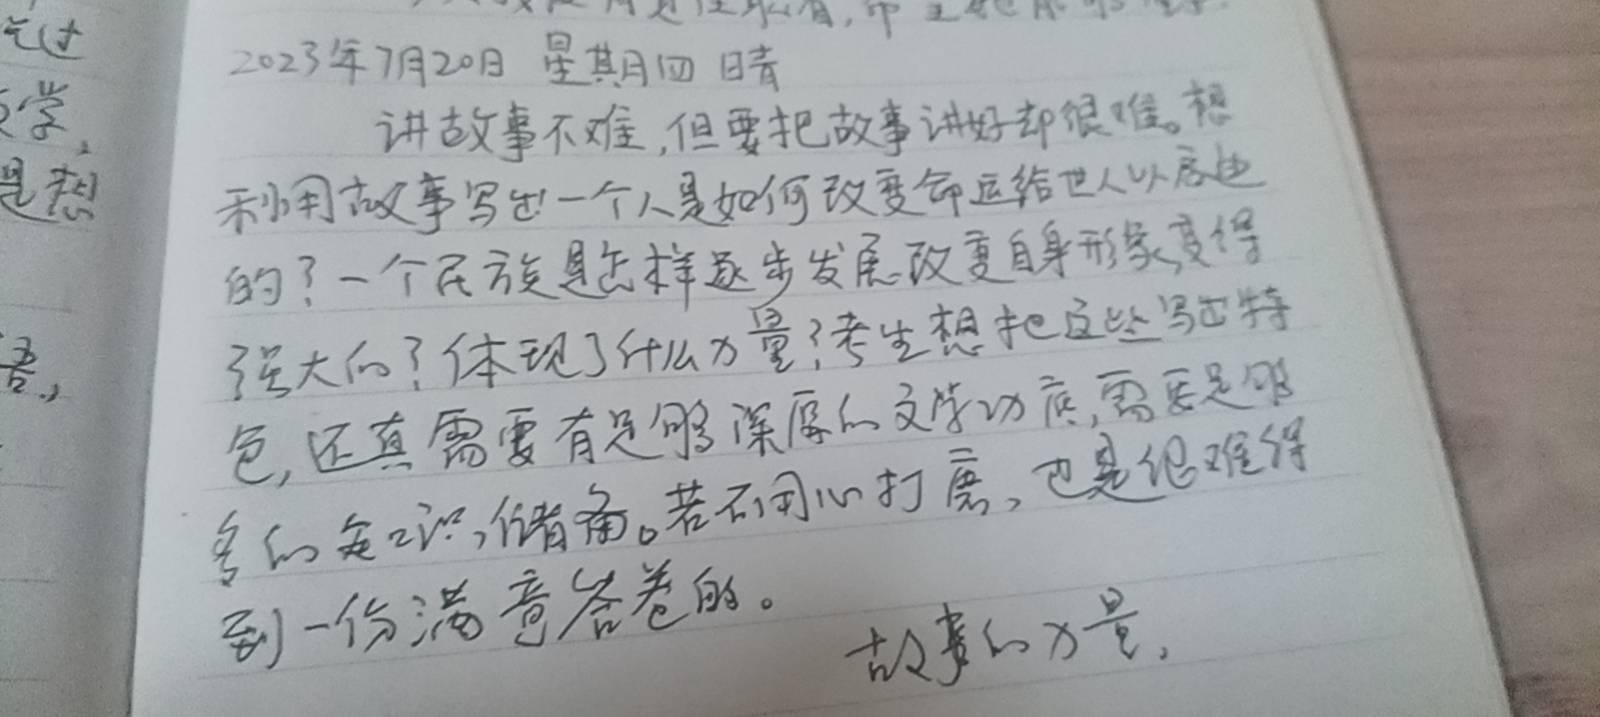 2023年7月20日 星期四 晴
讲故事不难,但要把故事讲好却很难。想
利用故事写出一个人是如何改变命运给世人以启迪
的?一个民族是怎样逐步发展改变自身形象,变得
强大的?体现了什么力量?考生想把这些写出特
色,还真需要有足够深厚的文学功底,需要足够
多的知识储备。若不用心打磨,也是很难得
到一份满意答卷的。
故事的力量,
过
学,
是想